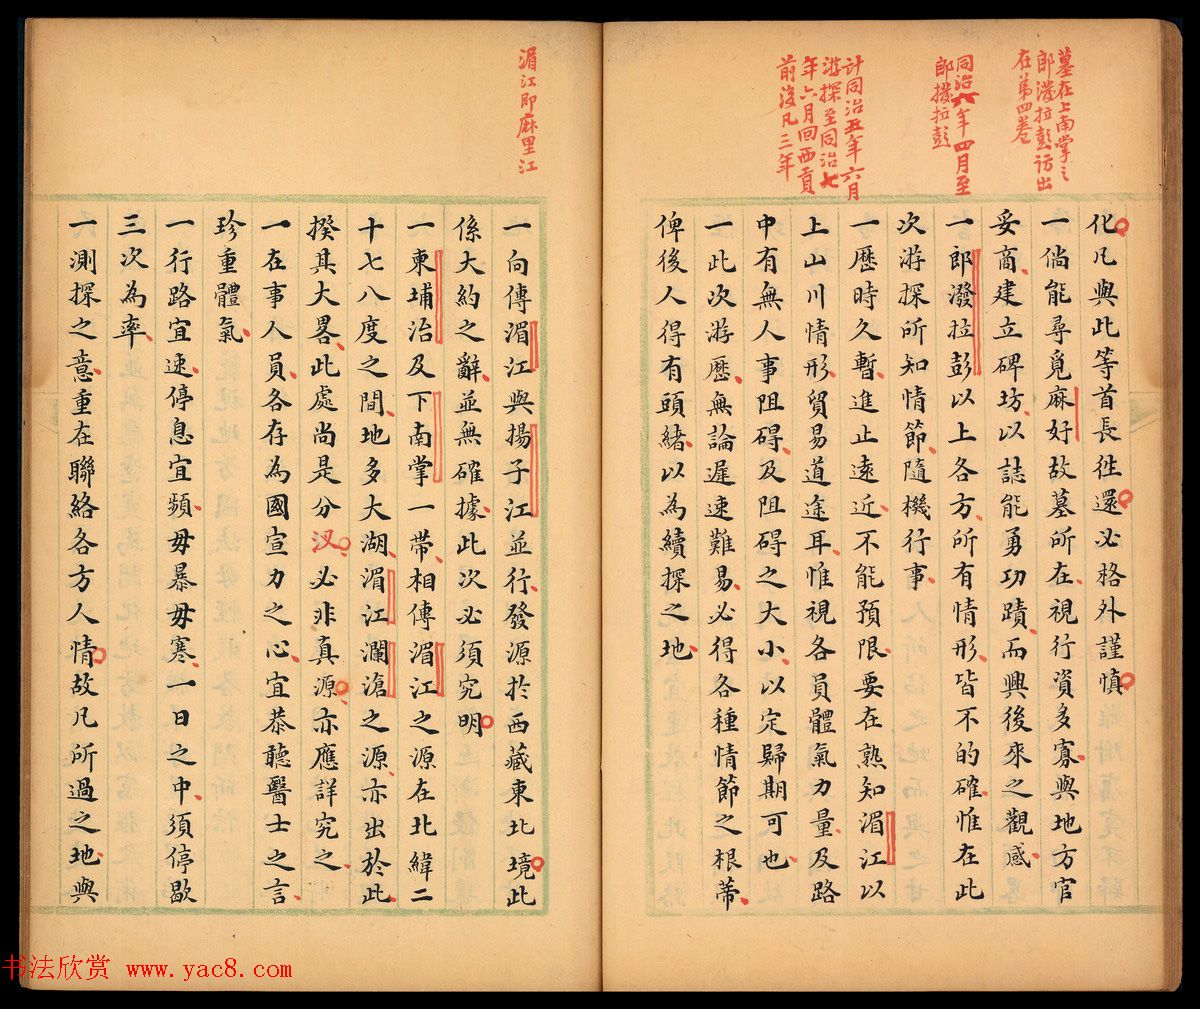 墓在上南掌之
郎潑拉彭訪出
在第四卷
同治六年四月至
郎撥拉彭
計同治五年六月
游探至同治七
年六月回西貢
前後凡三年
化凡與此等首長徃還必格外謹慎
一倘能尋覓麻好故墓所在視行資多寡與地方官
妥商建立碑坊以誌能勇功蹟而興後來之觀感
一郎潑拉彭以上各方所有情形皆不的確惟在此
次游探所知情節隨機行事
一歷時久暫進止遠近不能預限要在熟知湄江以
上山川情形貿易道途耳惟視各員體氣力量及路
中有無人事阻碍及阻碍之大小以定歸期可也
一此次游歷無論遲速難易必得各種情節之根蒂
俾後人得有頭緒以為續探之地
湄江即麻里江
一向傳湄江與揚子江並行發源於西藏東北境此
係大約之辭並無確據此次必須究明
一柬埔治及下南掌一帶相傳湄江之源在北緯二
十七八度之間地多大湖湄江瀾滄之源亦出於此
揆其大畧此處尚是分汊必非真源亦應詳究之
一在事人員各存為國宣力之心宜恭聽醫士之言
珍重體氣
一行路宜速停息宜頻毋暴毋寒一日之中須停歇
三次為率
一測探之意重在聯絡各方人情故凡所過之地與
书法欣赏 www.yac8.com